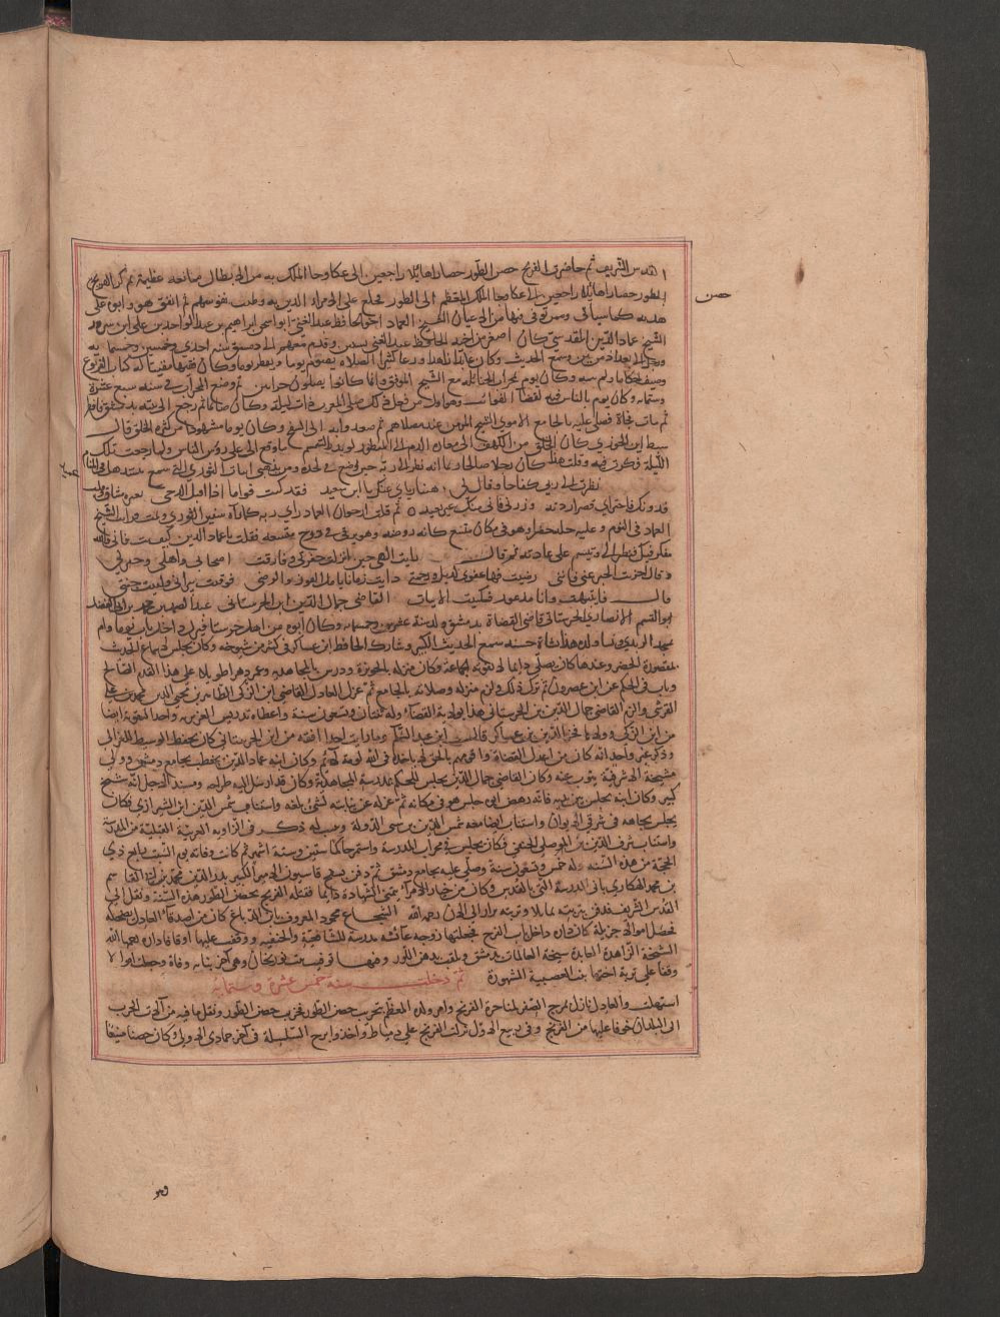 القدس الشريف ثم حاصرت الفرنج حصن الطور حصارا هائلا راجعين الى عكا وجا الملك
الطور حصارا هائلا راجعين الى عكا وجا الملك المعظم الى الطور فخلع على الامراء الذين به وطيب نفوسهم ثم اتفق هو وابوه على
حصن
هدمه كما سياتى وممن توفى فيها من الاعيان الشيخ العماد اخو الحافظ عبد الغنى ابو اسحق ابراهيم بن عبد الواحد بن على بن سرور
الشيخ عماد الدين المقدسى كان اصغر من اخيه الحافظ عبد الغنى بسنتين وقدم معهم الى دمشق سنة احدى وخمسين
ورحل الى بغداد مرتين وسمع الحديث وكان عابدا زاهدا ورعا كثير الصلاة يصوم يوما ويفطر يوما وكان فقيها مفتيا له كتاب الفروع
وصنف احكاما ولم يتمه وكان يوم بمحراب الحنابلة مع الشيخ الموفق وانما كانوا يصلون
وستمايه وكان يوم بالناس فيه لقضا الفوائت وهو اول من فعل ذلك صلى المغرب ذات ليلة وكان صائما ثم رجع الى بيته بدمشق فافطر
ثم مات فجاة فصلى عليه بالجامع الاموى الشيخ الموفق عند مصلاهم ثم صعدوا به الى السفح وكان يوما مشهودا من كثرة الخلق قال
سبط ابن الجوزى كان الخلق من الكهف الى مغارة الدم الى المنطور لو بذر السمسم ما وقع الا على روس الناس ولما رجعت تلك
الليلة فكرت فيه وقلت هذا كان رجلا صالحا ولعله نظر الى ربه حين وضع فى لحده ومر بذهنى ابيات الثورى التى
نظرت الى ربى كفاحا وقال لى هنيا رضاى عنك يا ابن سعيد فقد كنت قواما اذا اقبل الدجى بعبرة مشتاق وقلب عميد
فدونك فاختر اى قصر اردته وزرنى فانى منك غير بعيد ثم قلت ارجو ان العماد راى ربه كما رآه سفين الثورى ونمت فرايت الشيخ
العماد فى النوم وعليه حلة خضرا وهو فى مكان متسع كانه روضة وهو يرقى فى درج متسعة فقلت يا عماد الدين كيف بت فانى والله
مفكر فيك فنظر الى وتبسم على عادته ثم قال رايت الهى حين انزلت حفرتى وفارقت اصحابى واهلى وجيرتى
وقال جزيت الخير عنى فاننى رضيت فها عفوى لديك ورحمتى دابت زمانا تامل الفوز والرضى فوقيت نيرانى ولقيت جنتى
قال فانتبهت وانا مذعور فكتبت الابيات القاضى جمال الدين ابن الحرستانى عبد الصمد بن محمد بن ابى الفضل
ابو القسم الانصارى الحرستانى قاضى القضاة بدمشق ولد سنة عشرين وخمسمايه وكان ابوه من اهل حرستا فنزل داخل باب توما وام
بمسجد الزينبى ونشا ولده هذا نشاة حسنة سمع الحديث الكثير وشارك الحافظ ابن عساكر فى كثير من شيوخه وكان يجلس لاسماع الحديث
بمقصورة الخضر وعندها كان يصلى دايما لا تفوته الجماعة وكان منزله بالحويرة ودرس بالمجاهدية وعمر دهرا طويلا على هذا القدم الصالح
وناب فى الحكم عن ابن عصرون ثم ترك ذلك ولزم منزله وصلاته بالجامع ثم عزل العادل القاضى ابن الزكى الطاهر بن محيى الدين محمد بن على
القرشى والزم القاضى جمال الدين بن الحرستانى هذا بولاية القضاء وله ثنتان وتسعون سنة واعطاه تدريس العزيزيه واخذ التقوية ايضا
من ابن الزكى وولاها فخر الدين بن عساكر قال ابن عبد السلام ما رايت احدا افقه من ابن الحرستانى كان يحفظ الوسيط للغزالى
وذكر غير واحد انه كان من اعدل القضاة واقومهم بالحق لا ياخذه فى الله لومة لائم وكان ابنه عماد الدين يخطب بجامع دمشق وولى
مشيخة الاشرفية ينوب عنه وكان القاضى جمال الدين يجلس للحكم بمدرسته المجاهدية وكان قد ارسل اليه طراحة ومسند لاجل انه شيخ
كبير وكان ابنه يجلس بين يديه فاذا نهض ابوه جلس هو فى مكانه ثم عزله عن نيابته لشئ بلغه واستناب شمس الدين ابن الشيرازى فكان
يجلس تجاهه فى شرقى الايوان واستناب ايضا معه شمس الدين بن سنى الدولة وبنيت له دكة فى الزاويه الغربية القبلية من المدرسة
واستناب شرف الدين بن الموصلى الحنفى فكان يجلس فى محراب المدرسة واستمر حاكما سنتين وستة اشهر ثم كانت وفاته يوم السبت رابع ذى
الحجة من هذه السنه وله خمس وتسعون سنة وصلى عليه بجامع دمشق ثم دفن بسفح قاسيون الامير الكبير بدر الدين محمد بن ابى القاسم
بن محمد الهكارى بانى المدرسة التى بالقدس وكان من خيار الامراء يتمنى الشهادة دايما فقتله الفرنج بحصن الطور هذه السنة ونقل الى
القدس الشريف فدفن بتربته بماملا وتربته تزار الى الان رحمه الله الشجاع محمود المعروف بابن الدباغ كان من اصدقاء العادل يضحكه
فحصل اموالا جزيلة كان داره داخل باب الفرج فجعلتها زوجه عائشه مدرسة للشافعية والحنفيه ووقفت عليها اوقافا دارة رحمها الله
الشيخة الزاهدة العابدة شيخة العالمات بدمشق وتلقب بدهن اللوز وفيها توفيت بنت نورنجان وهى آخر بناته وفاة وجعلت اموالا
وقفا على تربة اختها بنت العصبية المشهورة ثم دخلت سنة خمس عشرة وستمايه
استهلت والعادل نازل بمرج الصفر لمناجزة الفرنج وامر ولده المعظم بتخريب حصن الطور فخرب حصن الطور ونقل ما فيه من آلات الحرب
الى البلدان خوفا عليها من الفرنج وفى ربيع الاول نزلت الفرنج على دمياط واخذوا برج السلسلة فى آخر جمادى الاولى وكان حصنا منيعا
وهو